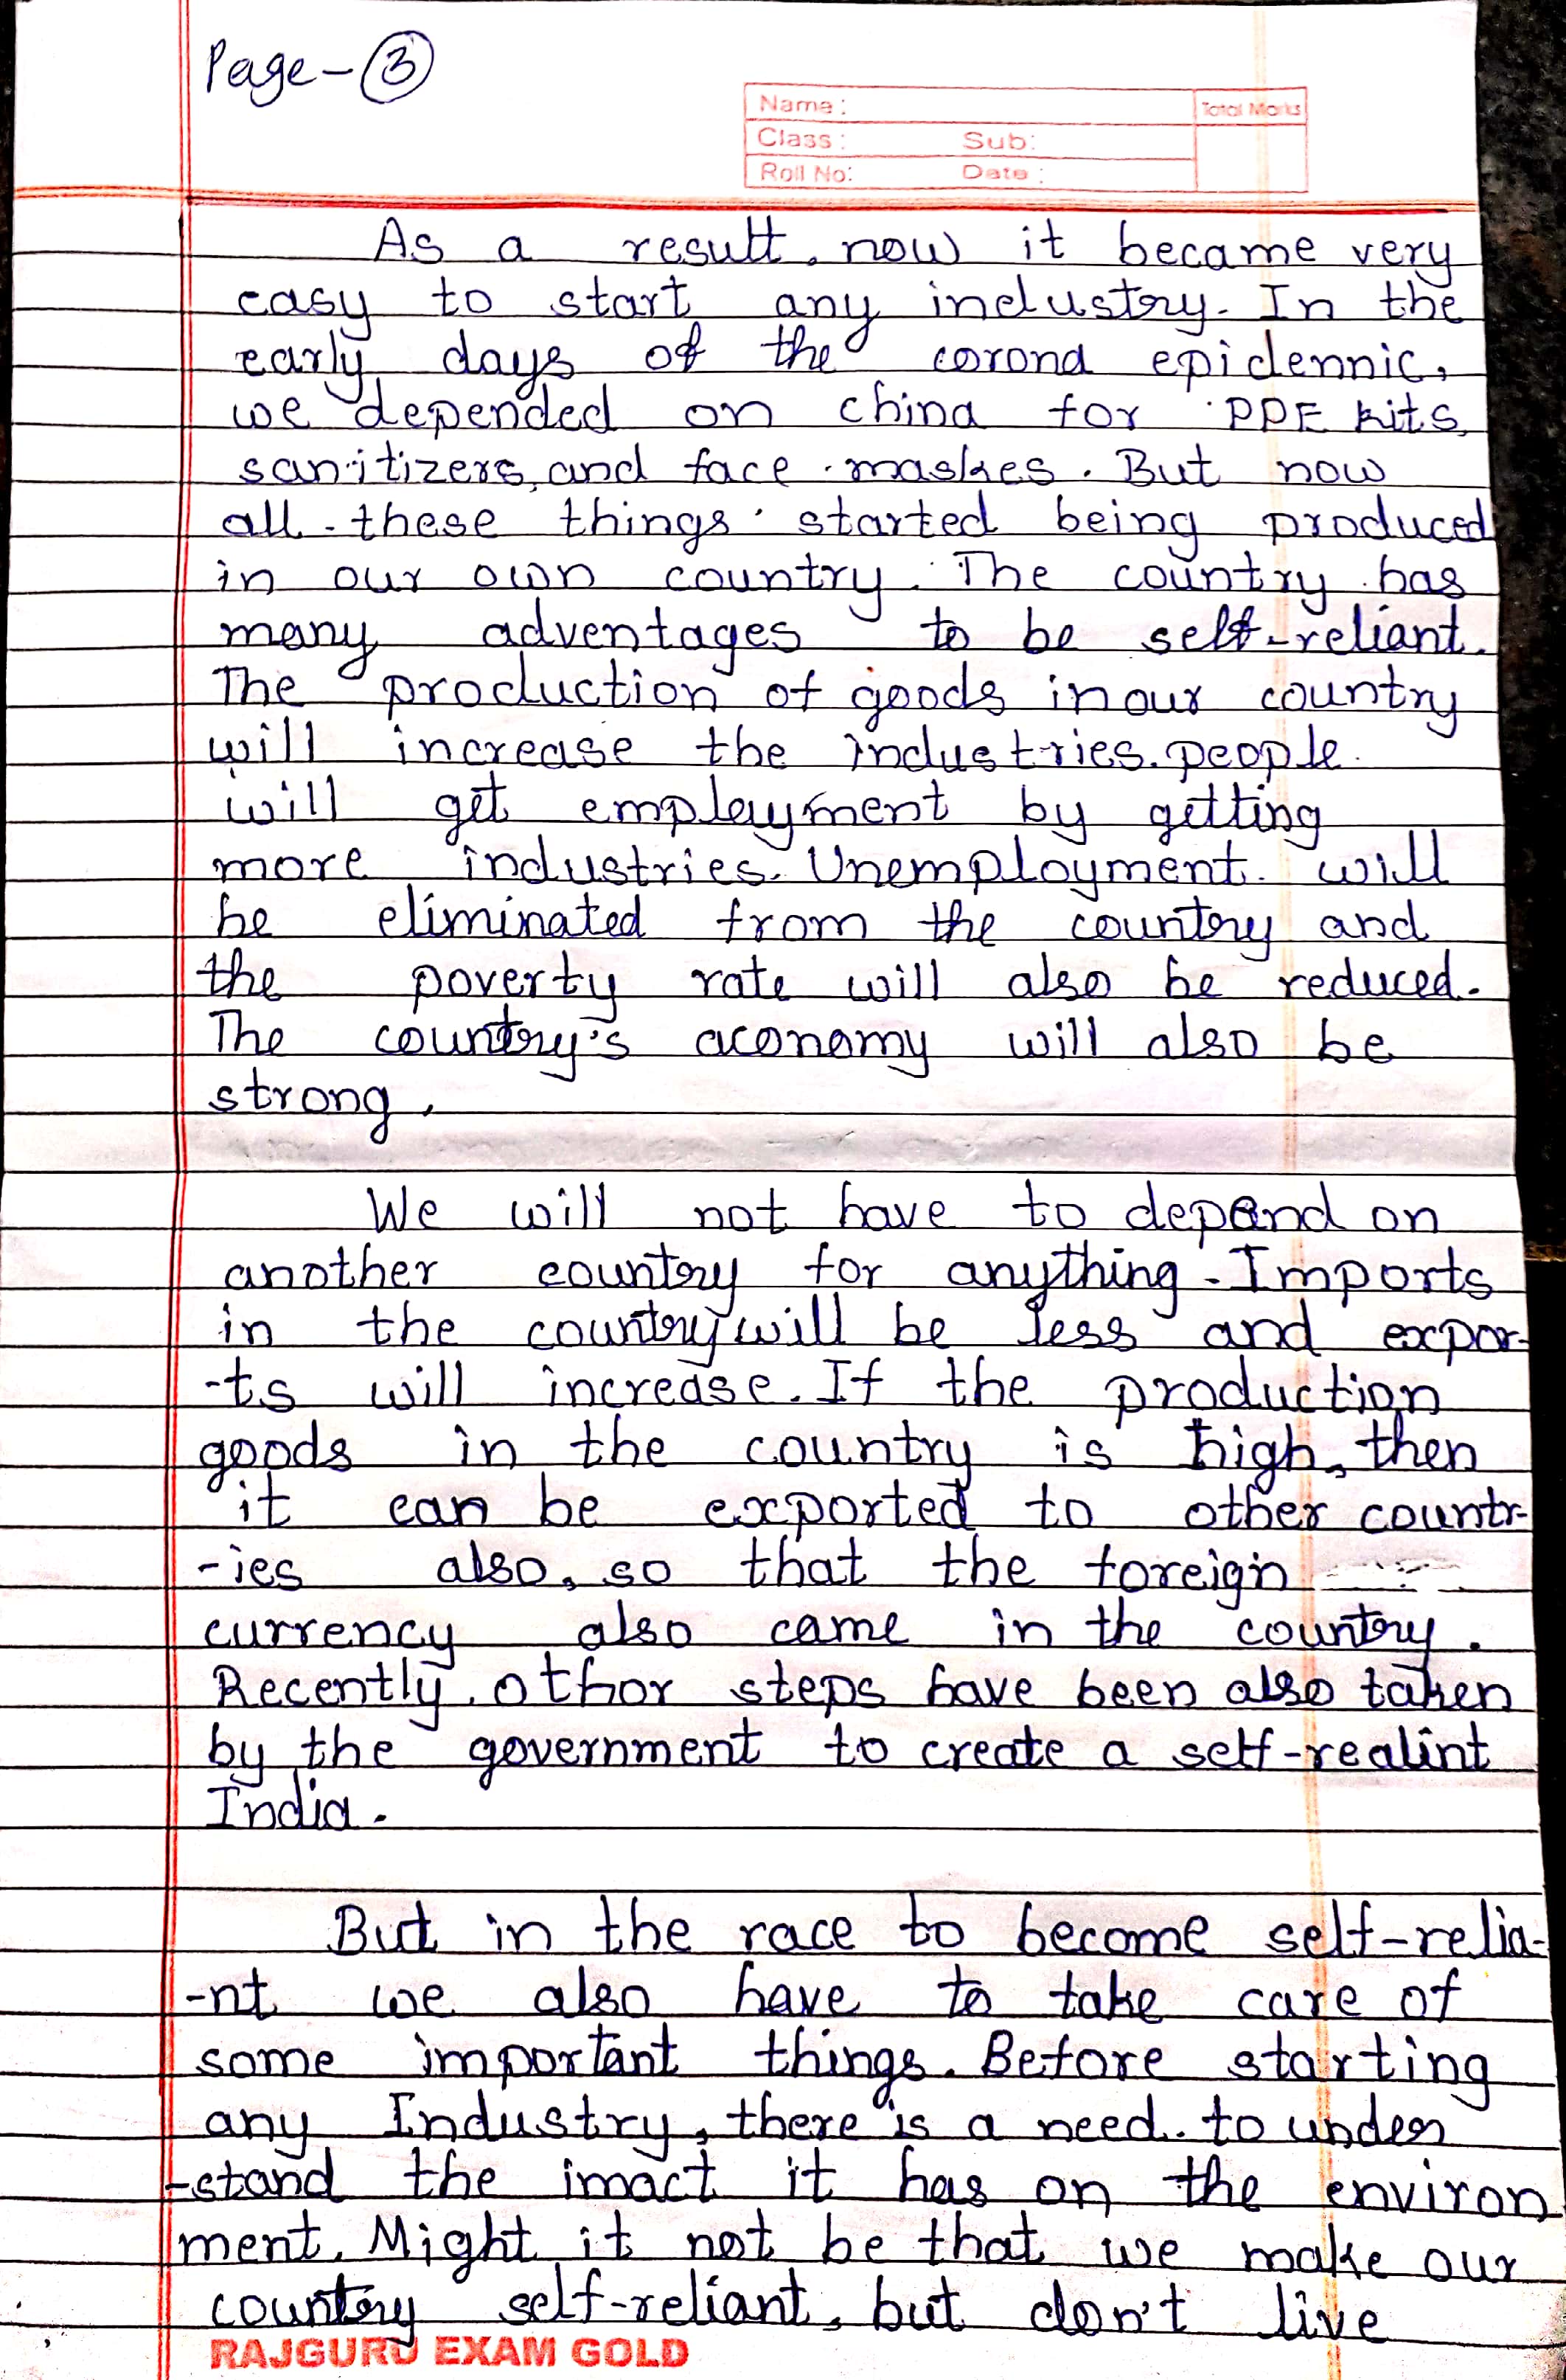 Page-3
Name: Total Marks
Class: Sub:
Roll No: Date:
As a result, now it became very
easy to start any industry. In the
early days of the corona epidennic,
we depended on china for PPE kits,
sanitizers, and face maskes. But now
all these things started being produced
in our own country. The country has
many adventages to be self-reliant.
The production of goods in our country
will increase the industries. people
will get employment by getting
more industries. Unemployment will
be eliminated from the country and
the poverty rate will also be reduced.
The country's aconomy will also be
strong.
We will not have to depend on
another country for anything. Imports
in the country will be less and expor-
-ts will increase. If the production
goods in the country is high, then
it can be exported to other countr-
-ies also, so that the foreign
currency also came in the country.
Recently, othor steps have been also taken
by the government to create a self-realint
India.
But in the race to become self-relia-
-nt we also have to take care of
some important things. Before starting
any Industry, there is a need to under
-stand the imact it has on the environ
ment. Might it not be that we make our
country self-reliant, but don't live
RAJGURU EXAM GOLD